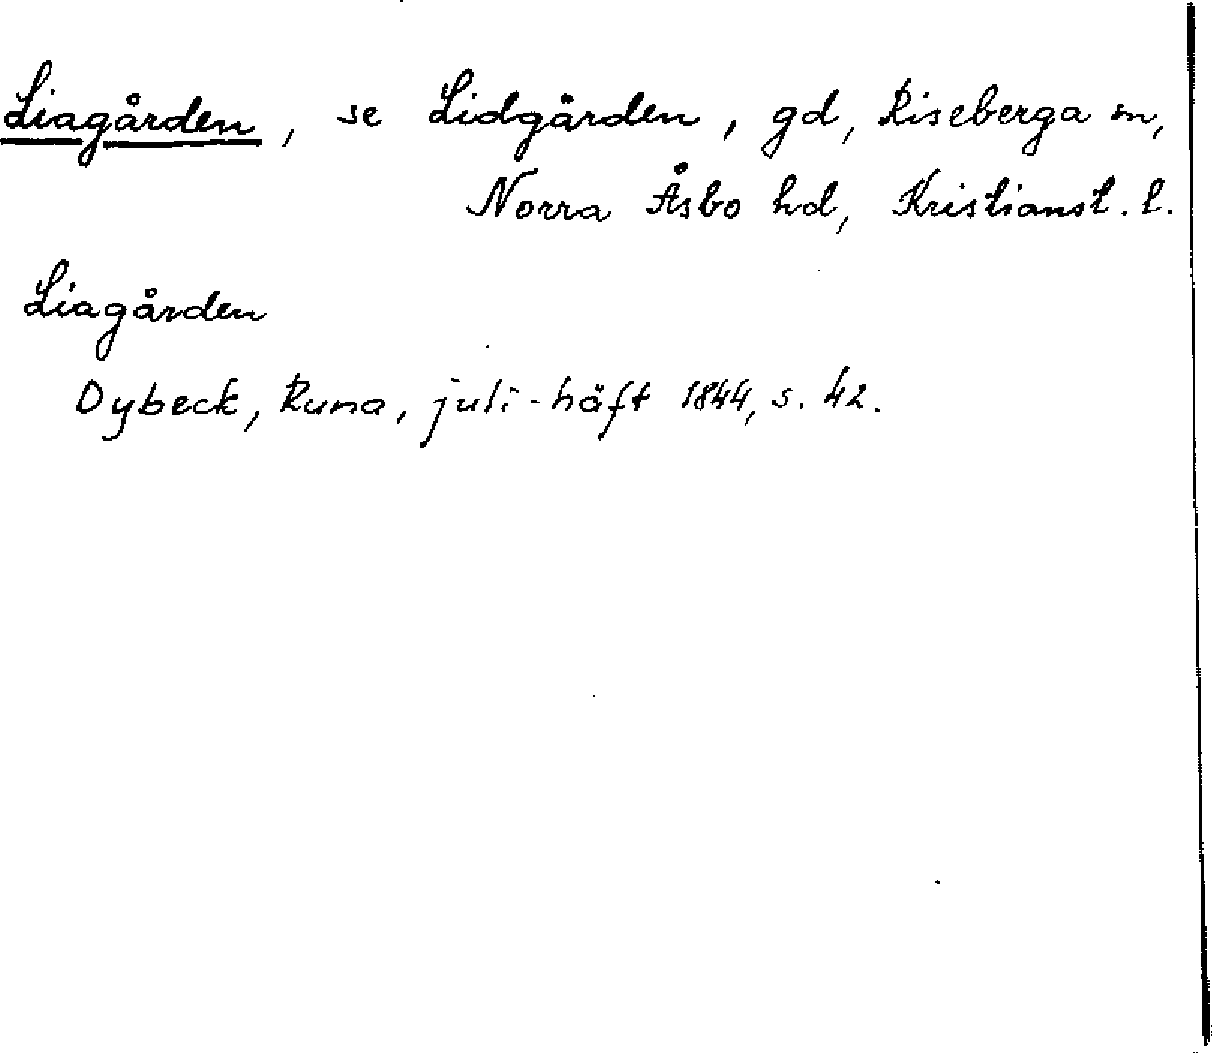 Liagården, se Lidgården, gd, Riseberga sn,
Norra Åsbo hd, Kristianst. l.
Liagården
Dybeck, Runa, juli-häft 1844, s. 42.